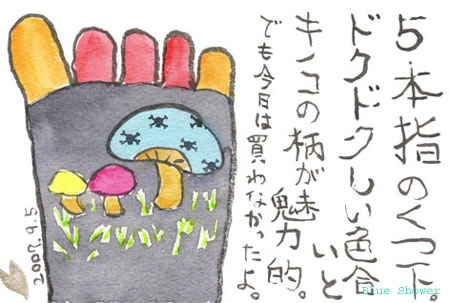 5本指のくつ下。
ドクドクしい色合いと
キノコの柄が魅力的。
でも今日は買わなかったよ。
2007.9.5
Blue Shower